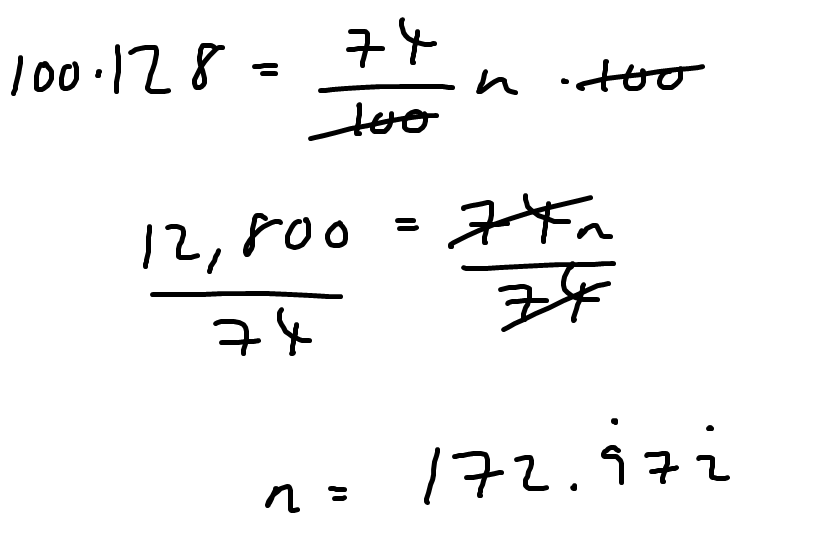 100·128 = 74/100 n · 100
12,800/74 = 74n/74
n = 172.9̇72̇